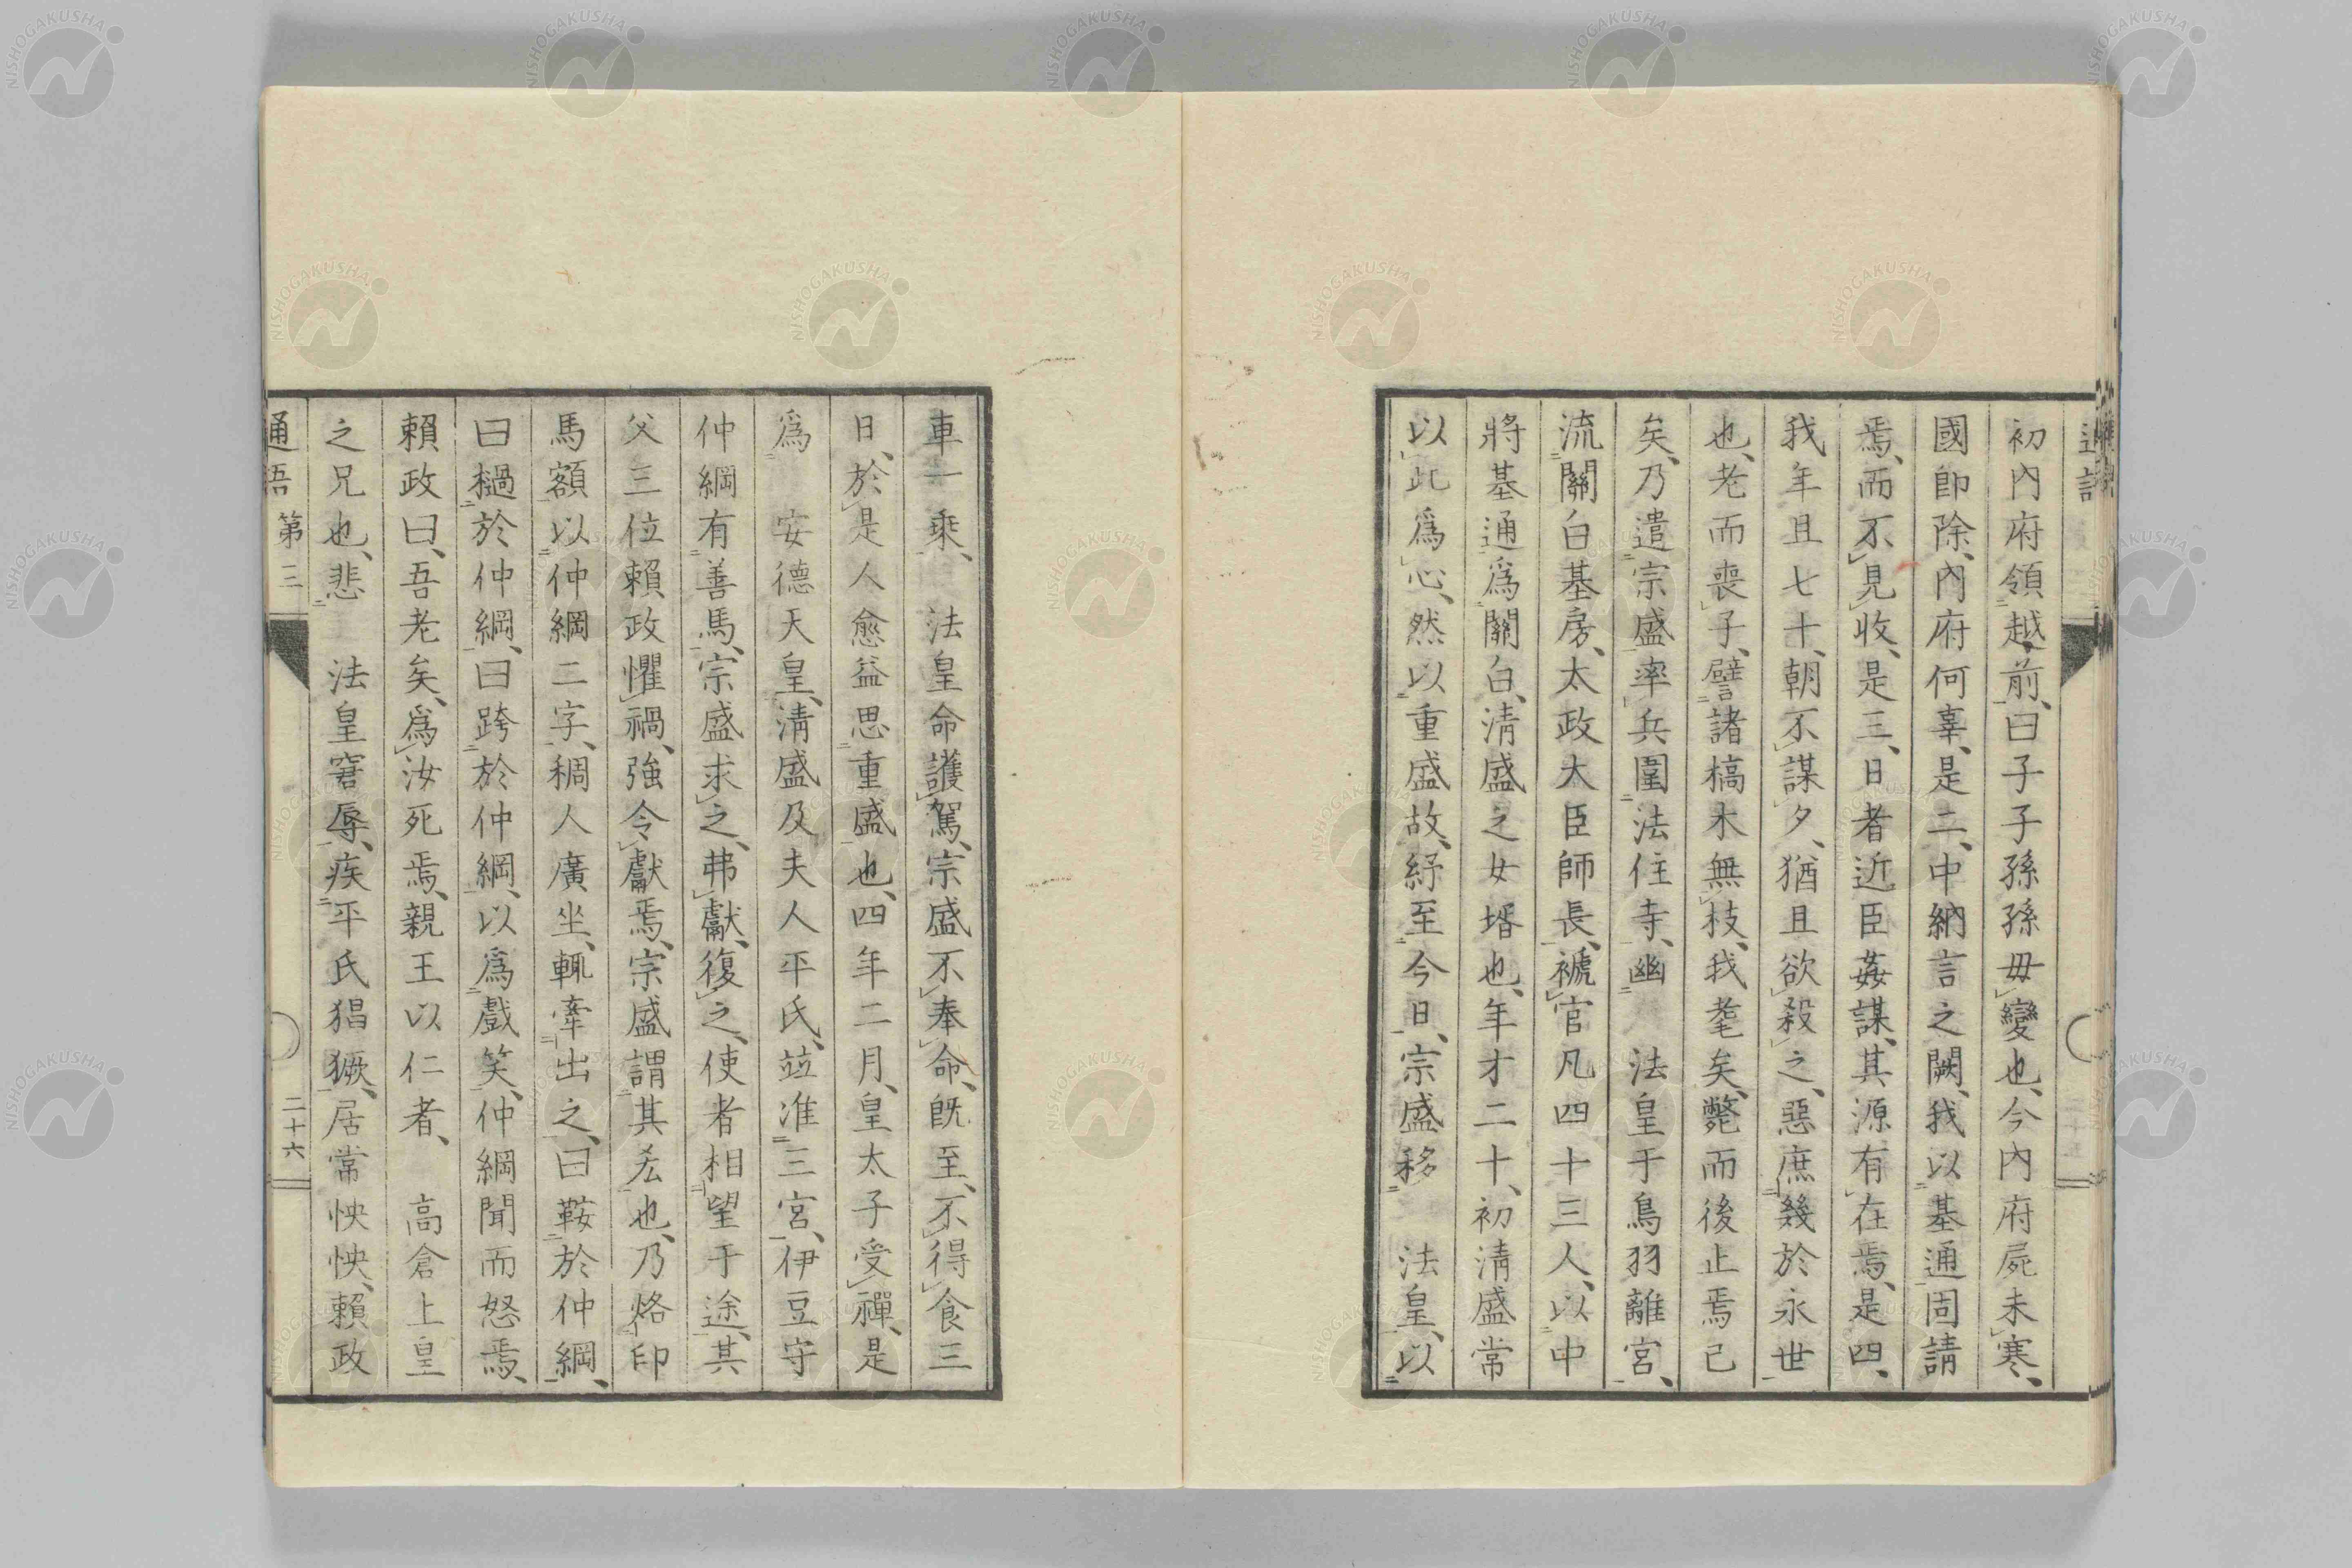 初內府領越前、曰子子孫孫毋變也、今內府屍未寒、
國卽除、內府何辜、是二、中納言之闕、我以基通固請
焉、而不見收、是三、日者近臣姦謀、其源有在焉、是四、
我年且七十、朝不謀夕、猶且欲殺之、惡庶幾於永世
也、老而喪子、譬諸槁木無枝、我耄矣、斃而後止焉已
矣、乃遣宗盛率兵圍法住寺、幽　法皇于鳥羽離宮、
流關白基房、太政大臣師長、褫官凡四十三人、以中
將基通爲關白、淸盛之女壻也、年才二十、初淸盛常
以此爲心、然以重盛故、紓至今日、宗盛移　法皇、以
車一乘、　法皇命護駕、宗盛不奉命、旣至、不得食三
日、於是人愈益思重盛也、四年二月、皇太子受禪、是
爲　安德天皇、淸盛及夫人平氏、竝准三宮、伊豆守
仲綱有善馬、宗盛求之、弗獻、復之、使者相望于途、其
父三位賴政懼禍、強令獻焉、宗盛謂其吝也、乃烙印
馬額以仲綱二字、稠人廣坐、輒牽出之、曰鞍於仲綱、
曰檛於仲綱、曰跨於仲綱、以爲戲笑、仲綱聞而怒焉、
賴政曰、吾老矣、爲汝死焉、親王以仁者、　高倉上皇
之兄也、悲　法皇窘辱、疾平氏猖獗、居常怏怏、賴政
通語　第三　二十六
NISHOGAKUSHA